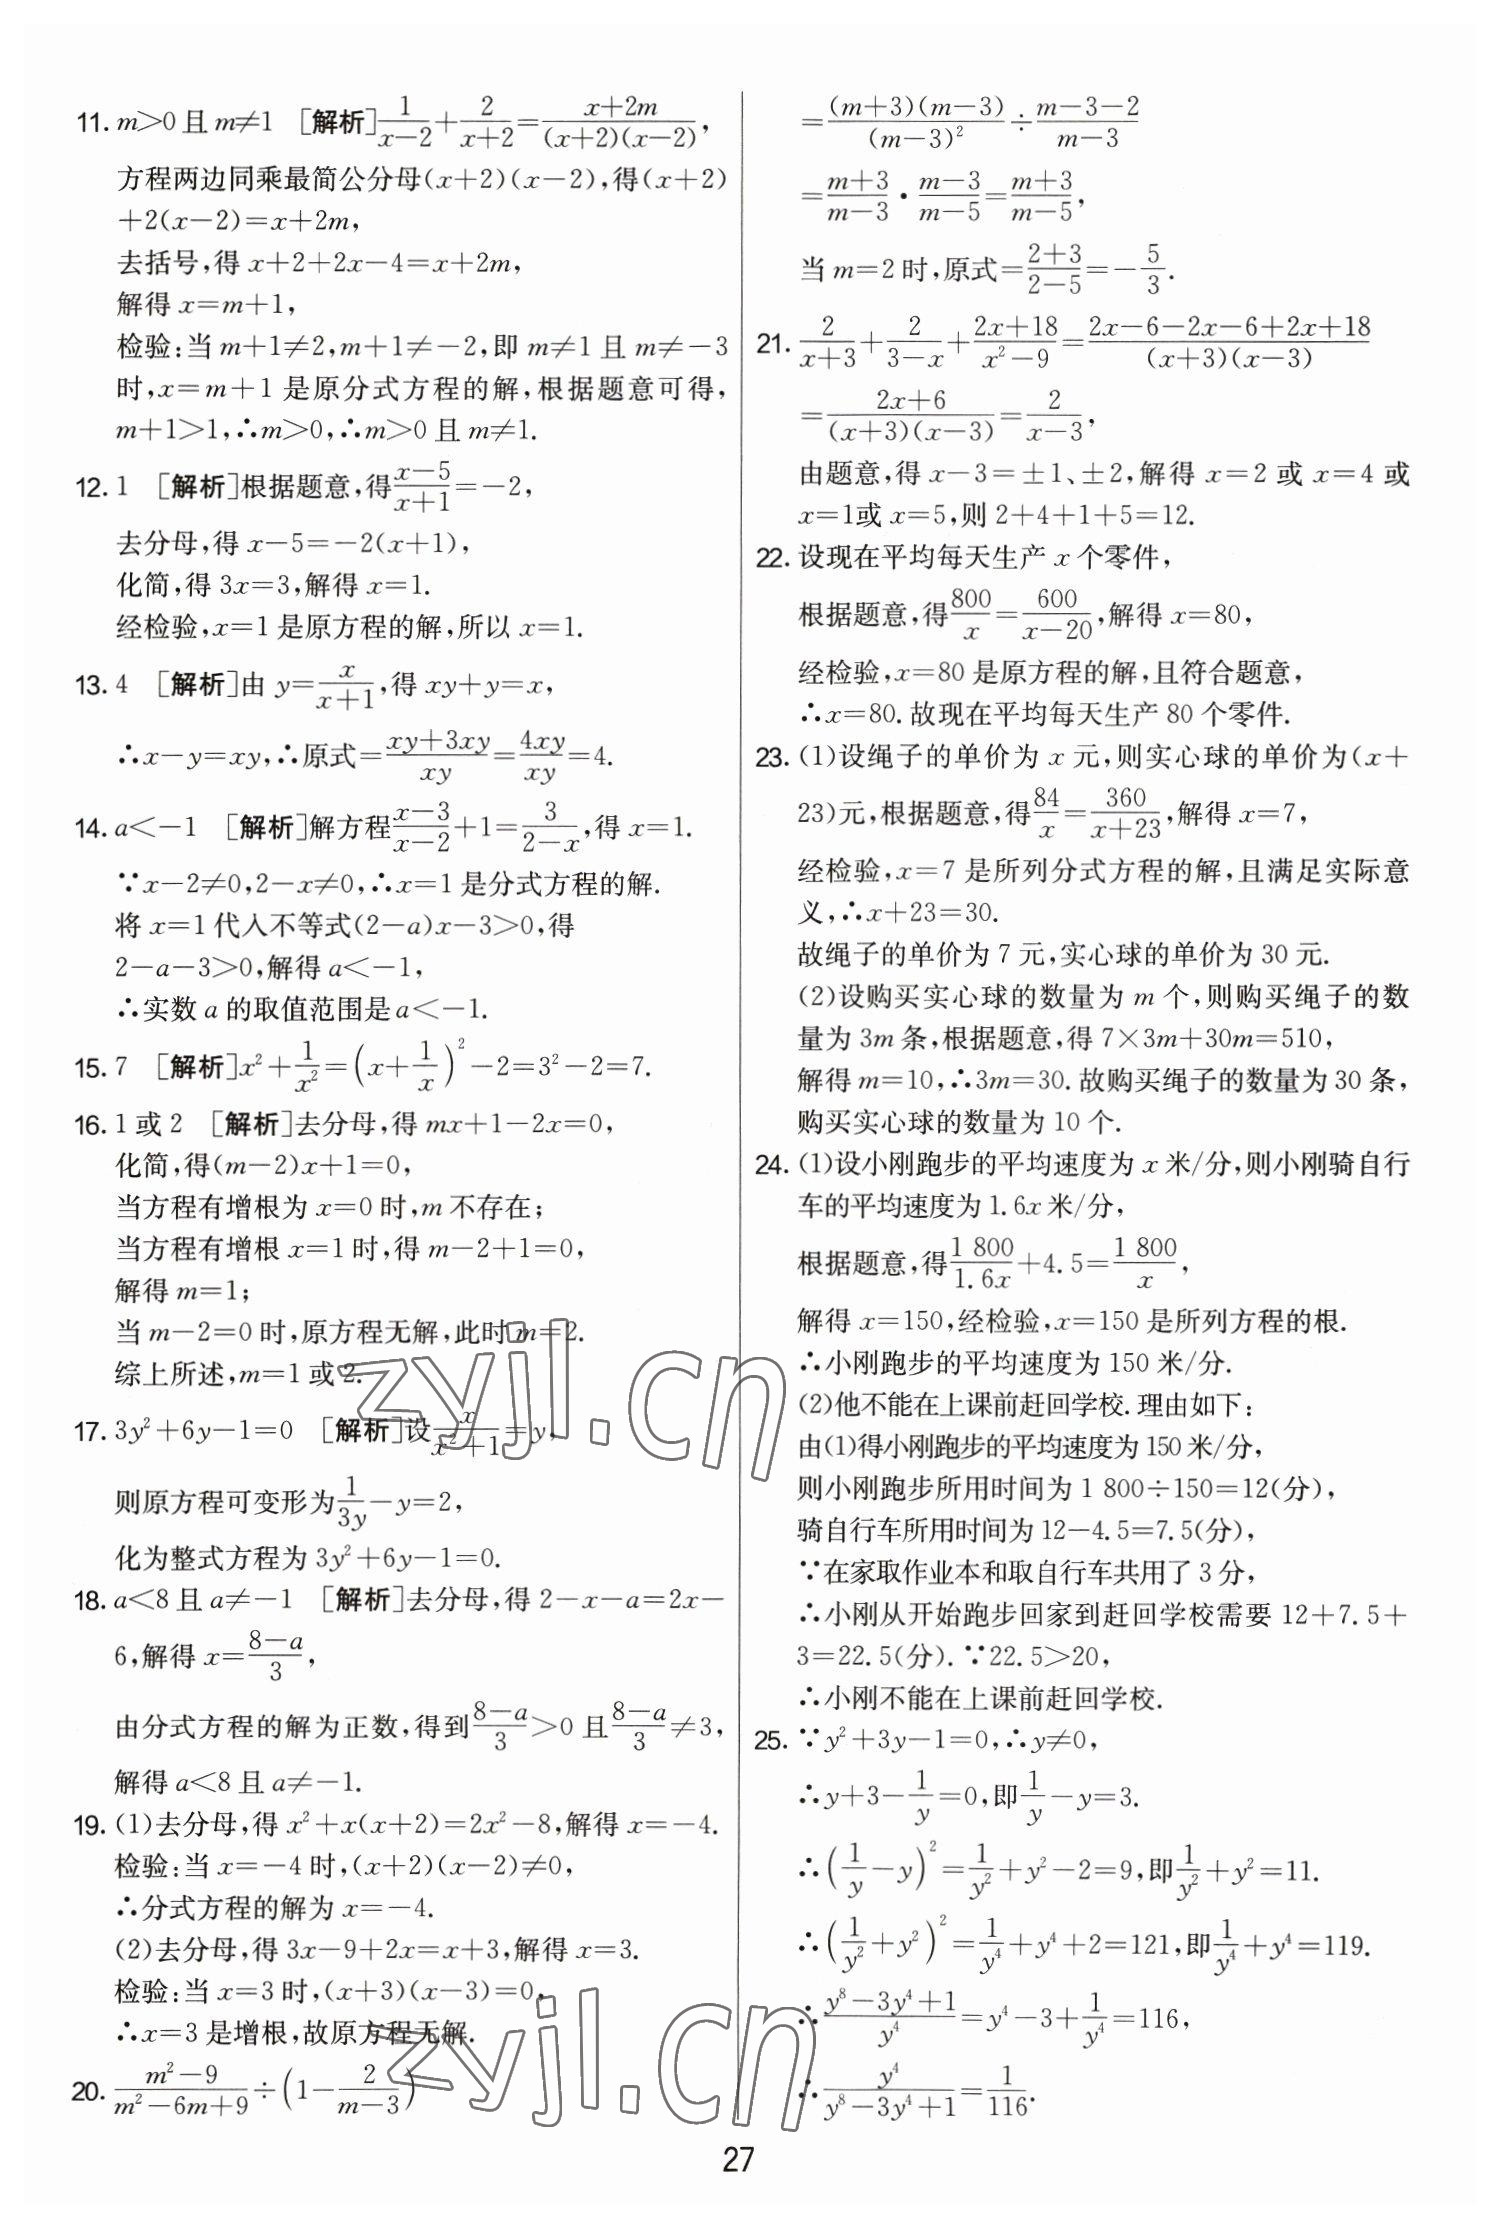 11. m>0 且 m≠1 [解析]1/(x−2)+2/(x+2)=(x+2m)/((x+2)(x−2)),
方程两边同乘最简公分母(x+2)(x−2),得(x+2)
+2(x−2)=x+2m,
去括号,得 x+2+2x−4=x+2m,
解得 x=m+1,
检验:当 m+1≠2,m+1≠−2,即 m≠1 且 m≠−3
时,x=m+1 是原分式方程的解,根据题意可得,
m+1>1,∴m>0,∴m>0 且 m≠1.
12. 1 [解析]根据题意,得(x−5)/(x+1)=−2,
去分母,得 x−5=−2(x+1),
化简,得 3x=3,解得 x=1.
经检验,x=1 是原方程的解,所以 x=1.
13. 4 [解析]由 y=x/(x+1),得 xy+y=x,
∴x−y=xy,∴原式=(xy+3xy)/xy=4xy/xy=4.
14. a<−1 [解析]解方程(x−3)/(x−2)+1=3/(2−x),得 x=1.
∵x−2≠0,2−x≠0,∴x=1 是分式方程的解.
将 x=1 代入不等式(2−a)x−3>0,得
2−a−3>0,解得 a<−1,
∴实数 a 的取值范围是 a<−1.
15. 7 [解析]x²+1/x²=(x+1/x)²−2=3²−2=7.
16. 1 或 2 [解析]去分母,得 mx+1−2x=0,
化简,得(m−2)x+1=0,
当方程有增根为 x=0 时,m 不存在;
当方程有增根 x=1 时,得 m−2+1=0,
解得 m=1;
当 m−2=0 时,原方程无解,此时 m=2.
综上所述,m=1 或 2.
17. 3y²+6y−1=0 [解析]设x/(x²+1)=y,
则原方程可变形为1/(3y)−y=2,
化为整式方程为 3y²+6y−1=0.
18. a<8 且 a≠−1 [解析]去分母,得 2−x−a=2x−
6,解得 x=(8−a)/3,
由分式方程的解为正数,得到(8−a)/3>0 且(8−a)/3≠3,
解得 a<8 且 a≠−1.
19. (1)去分母,得 x²+x(x+2)=2x²−8,解得 x=−4.
检验:当 x=−4 时,(x+2)(x−2)≠0,
∴分式方程的解为 x=−4.
(2)去分母,得 3x−9+2x=x+3,解得 x=3.
检验:当 x=3 时,(x+3)(x−3)=0,
∴x=3 是增根,故原方程无解.
20. (m²−9)/(m²−6m+9)÷(1−2/(m−3))
=((m+3)(m−3))/(m−3)²÷(m−3−2)/(m−3)
=(m+3)/(m−3)·(m−3)/(m−5)=(m+3)/(m−5),
当 m=2 时,原式=(2+3)/(2−5)=−5/3.
21. 2/(x+3)+2/(3−x)+(2x+18)/(x²−9)=(2x−6−2x−6+2x+18)/((x+3)(x−3))
=(2x+6)/((x+3)(x−3))=2/(x−3),
由题意,得 x−3=±1、±2,解得 x=2 或 x=4 或
x=1或 x=5,则 2+4+1+5=12.
22. 设现在平均每天生产 x 个零件,
根据题意,得800/x=600/(x−20),解得 x=80,
经检验,x=80 是原方程的解,且符合题意,
∴x=80.故现在平均每天生产 80 个零件.
23. (1)设绳子的单价为 x 元,则实心球的单价为(x+
23)元,根据题意,得84/x=360/(x+23),解得 x=7,
经检验,x=7 是所列分式方程的解,且满足实际意
义,∴x+23=30.
故绳子的单价为 7 元,实心球的单价为 30 元.
(2)设购买实心球的数量为 m 个,则购买绳子的数
量为 3m 条,根据题意,得 7×3m+30m=510,
解得 m=10,∴3m=30.故购买绳子的数量为 30 条,
购买实心球的数量为 10 个.
24. (1)设小刚跑步的平均速度为 x 米/分,则小刚骑自行
车的平均速度为 1.6x 米/分,
根据题意,得1 800/1.6x+4.5=1 800/x,
解得 x=150,经检验,x=150 是所列方程的根.
∴小刚跑步的平均速度为 150 米/分.
(2)他不能在上课前赶回学校.理由如下:
由(1)得小刚跑步的平均速度为 150 米/分,
则小刚跑步所用时间为 1 800÷150=12(分),
骑自行车所用时间为 12−4.5=7.5(分),
∵在家取作业本和取自行车共用了 3 分,
∴小刚从开始跑步回家到赶回学校需要 12+7.5+
3=22.5(分).∵22.5>20,
∴小刚不能在上课前赶回学校.
25. ∵y²+3y−1=0,∴y≠0,
∴y+3−1/y=0,即1/y−y=3.
∴(1/y−y)²=1/y²+y²−2=9,即1/y²+y²=11.
∴(1/y²+y²)²=1/y⁴+y⁴+2=121,即1/y⁴+y⁴=119.
∴(y⁸−3y⁴+1)/y⁴=y⁴−3+1/y⁴=116,
∴y⁴/(y⁸−3y⁴+1)=1/116.
zyjl.cn
zyjl.cn
27